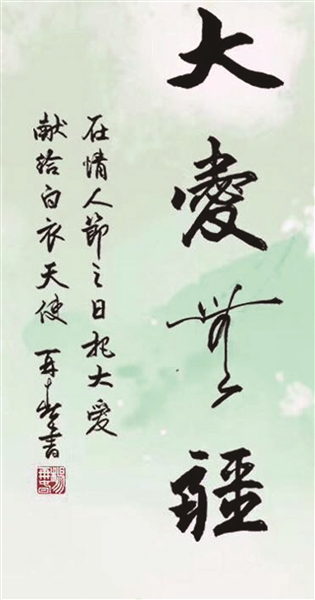 大愛無疆
在情人節之日把大爱
献给白衣天使 再書